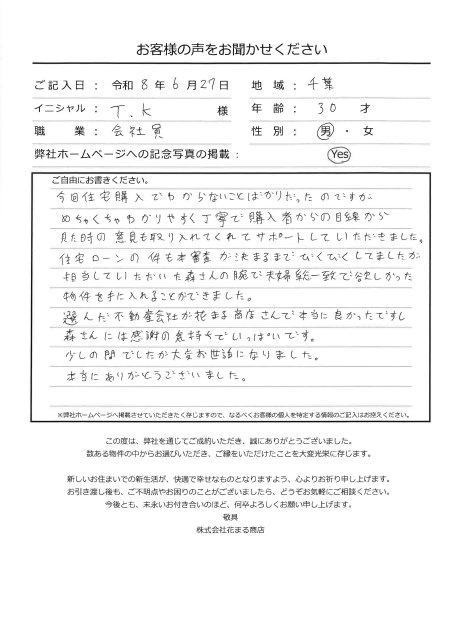 お客様の声をお聞かせください
ご記入日： 令和 8 年 6 月 27 日 地 域： 千葉
イニシャル： T.K 様 年 齢： 30 才
職 業： 会社員 性 別： 男 ・ 女
弊社ホームページへの記念写真の掲載： Yes
ご自由にお書きください。
今回住宅購入でわからないことばかりだったのですが
めちゃくちゃわかりやすく丁寧で購入者からの目線から
見た時の意見も取り入れてくれてサポートしていただきました。
住宅ローンの件も本審査が決まるまでひくひくしてましたが
担当していただいた森さんの腕で夫婦総一致で欲しかった
物件を手に入れることができました。
選んだ不動産会社が花まる商店さんで本当に良かったですし
森さんには感謝の気持ちでいっぱいです。
少しの間でしたが大変お世話になりました。
本当にありがとうございました。
※弊社ホームページへ掲載させていただきたく存じますので、なるべくお客様の個人を特定する情報のご記入はお控えください。
この度は、弊社を通じてご成約いただき、誠にありがとうございました。
数ある物件の中からお選びいただき、ご縁をいただけたことを大変光栄に存じます。
新しいお住まいでの新生活が、快適で幸せなものとなりますよう、心よりお祈り申し上げます。
お引き渡し後も、ご不明点やお困りのことがございましたら、どうぞお気軽にご相談ください。
今後とも、末永いお付き合いのほど、何卒よろしくお願い申し上げます。
敬具
株式会社花まる商店